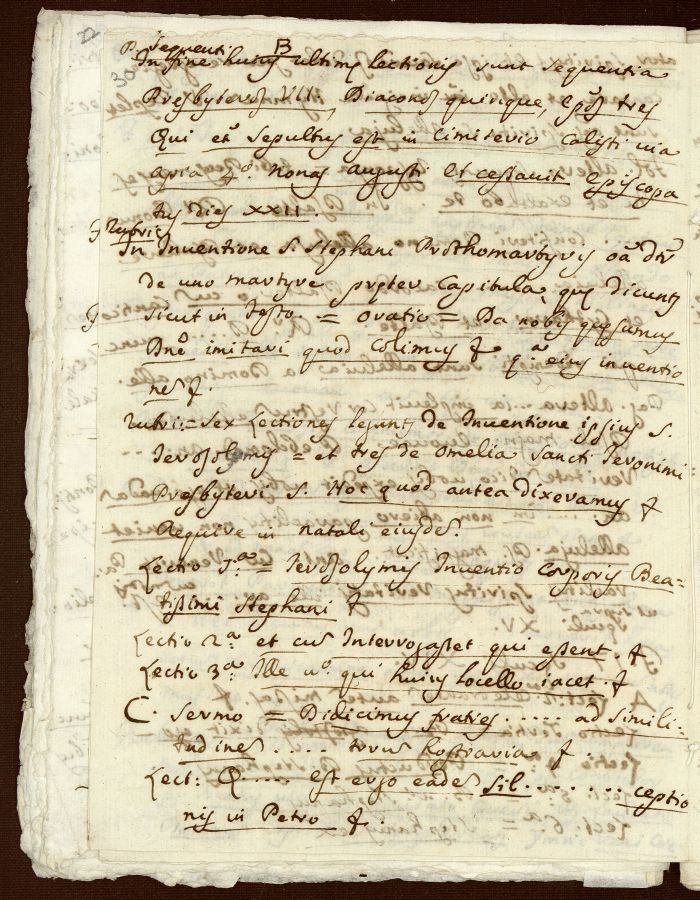 22
30
P. Sequenti B
In fine huius ultimę lectionis sunt sequentia
Presbyteros VII, Diaconos quinque, Ep̃os tres
Qui et̃ sepultus est in cimiterio Calisti via
apia 4º. nonas augusti et cessavit episcopa
tus dies XXII.
Rubric
In Inventione S. Stephani Prothomartyris oã dr̃
de uno martyre propter Capitula, quę dicunt
sicut in festo. = oratio = Da nobis quęsumus
Dnẽ imitari quod colimus &. q.ª eius inventio
nes &.
Rubri: = Sex Lectiones legunt de Inventione ipsius S.
Ierosolymis = et tres de omelia sancti Ieronimi
Presbyteri S. Hoc quod antea dixeramus &
Require in natali eiusdẽ.
Lectio 1.ª = Ierosolymis Inventio corporis Bea=
tissimi Stephani &
Lectio 2.ª et cũ Interrogasset qui essent. &
Lectio 3.ª Ille vº. qui huius locello iacet. &
C. Sermo = Didicimus fratres ..... ad simili=
tudinẽ .... &.
Lect: Q.... est ergo eadẽ sil. ..... ceptio
nis in Petro &.